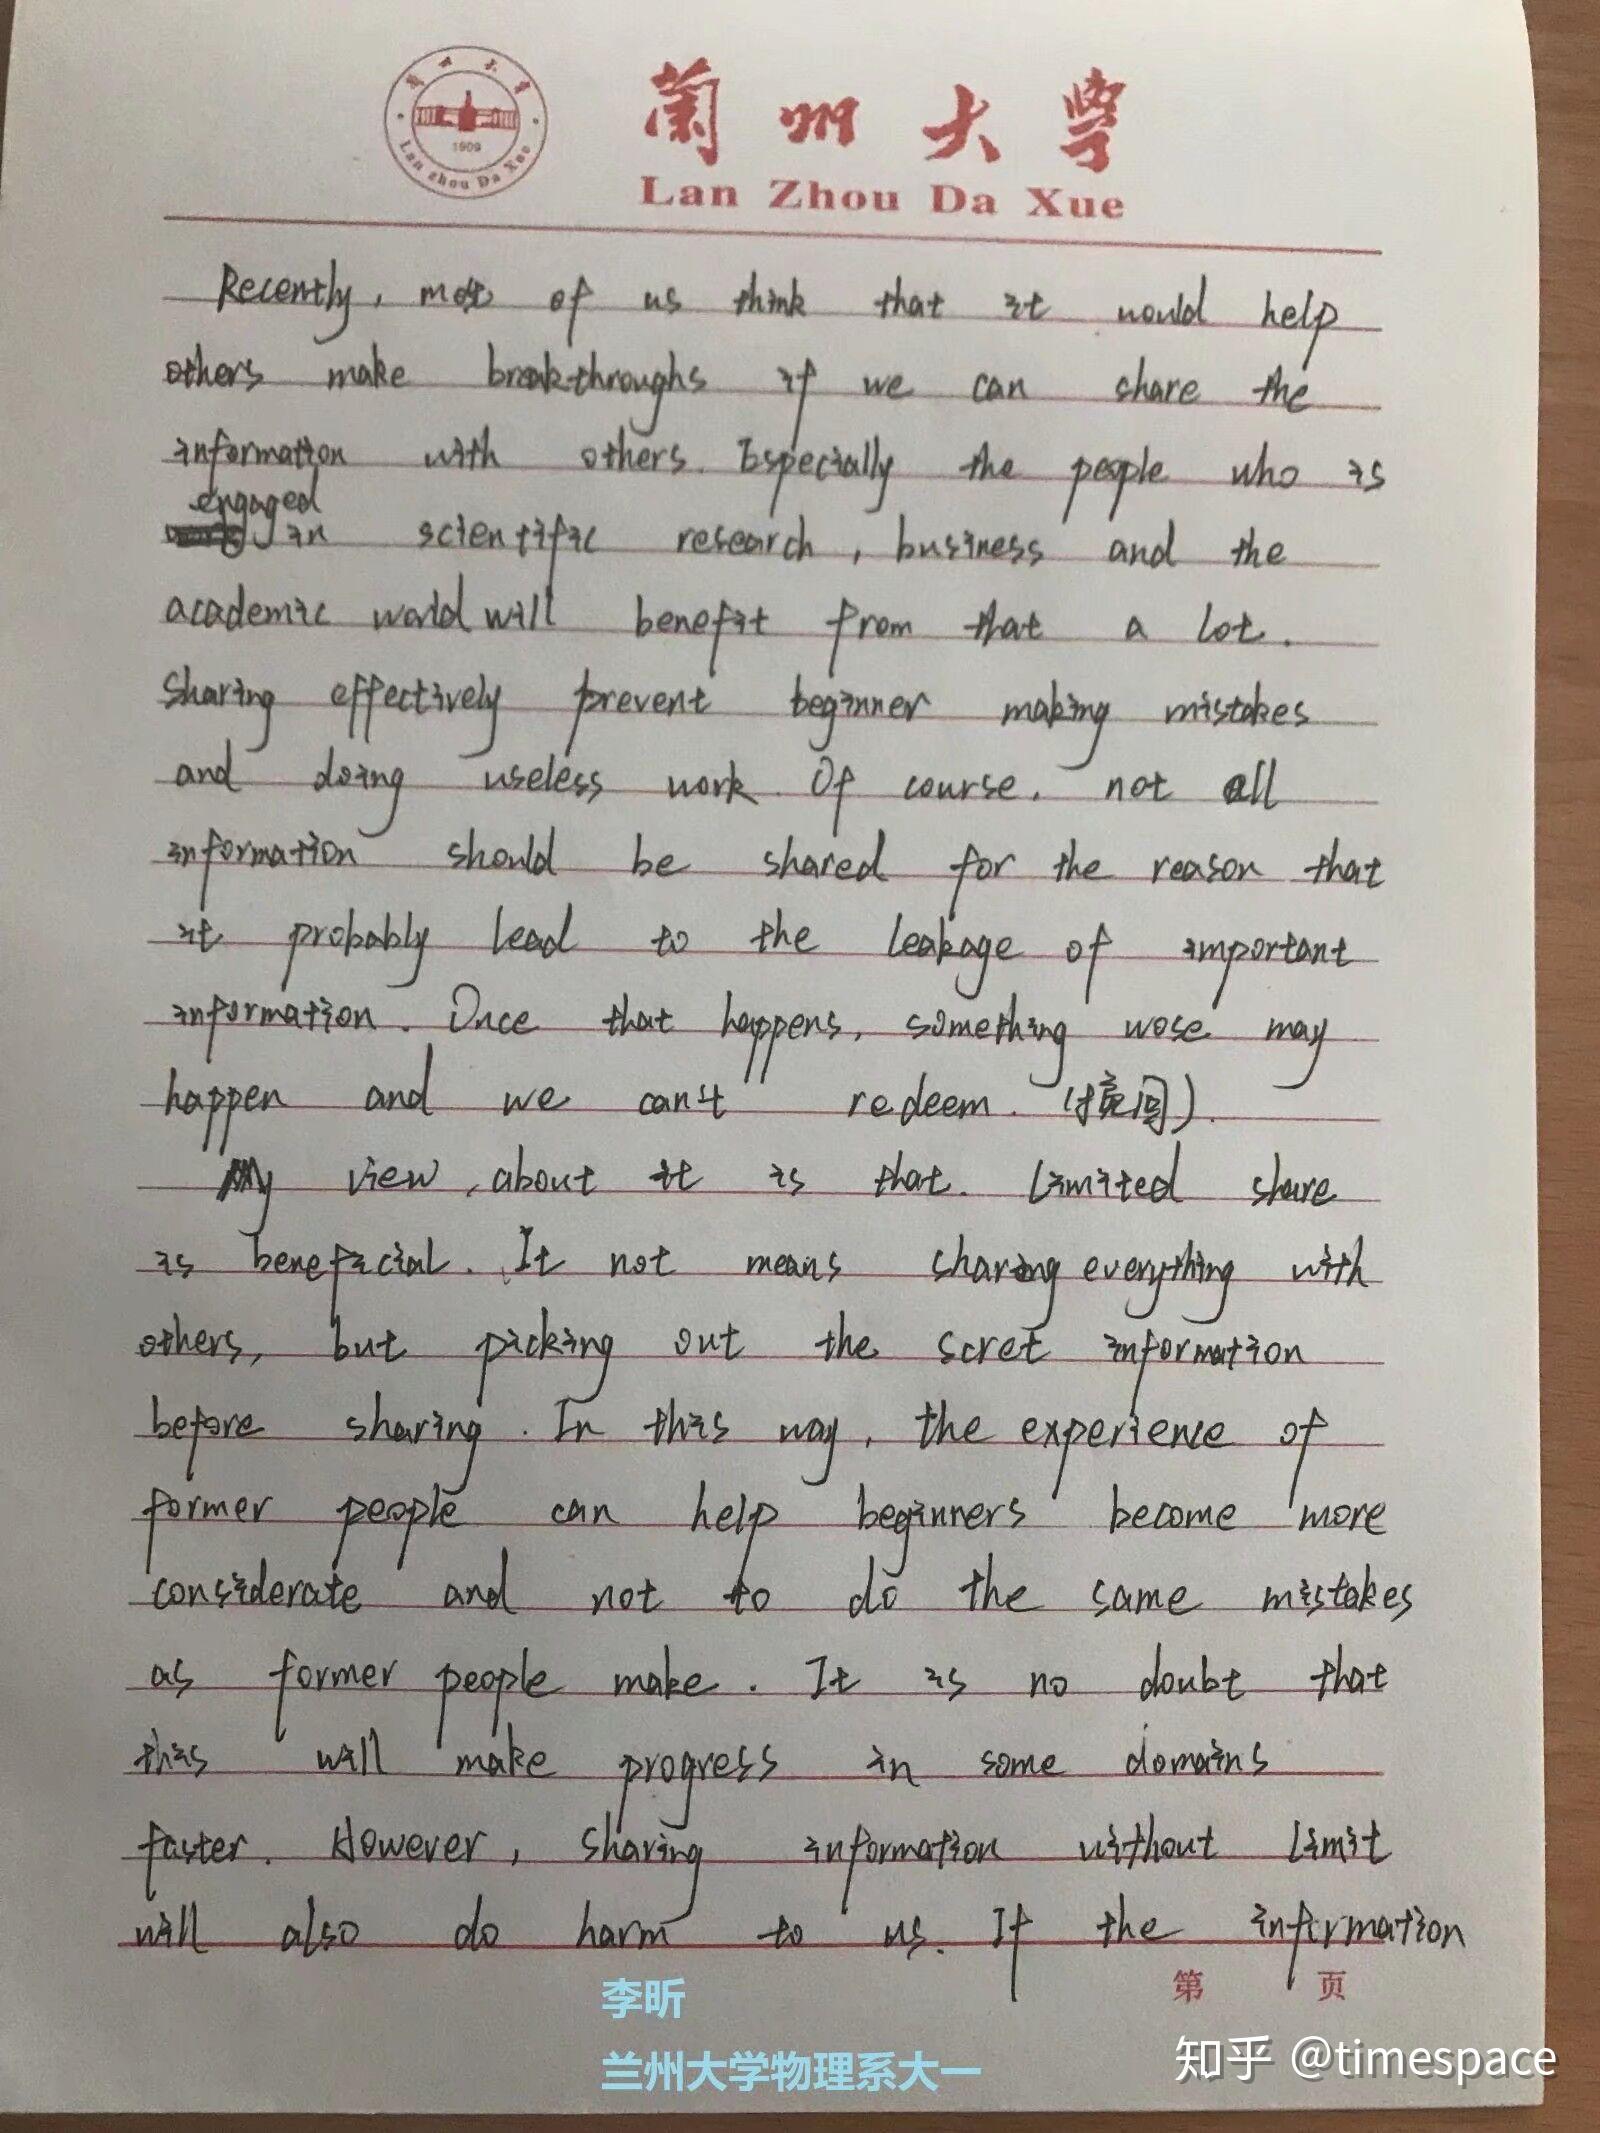 兰州大学
1909
Lan zhou Da Xue
蘭州大学
Lan Zhou Da Xue
Recently, most of us think that it would help
others make breakthroughs if we can share the
information with others. Especially the people who is
engaged
in scientific research, business and the
academic world will benefit from that a lot.
Sharing effectively prevent beginner making mistakes
and doing useless work. Of course, not all
information should be shared for the reason that
it probably lead to the leakage of important
information. Once that happens, something wose may
happen and we can't redeem. (挽回).
My view, about it is that. Limited share
is beneficial. It not means sharing everything with
others, but picking out the scret information
before sharing. In this way, the experience of
former people can help beginners become more
considerate and not to do the same mistakes
as former people make. It is no doubt that
this will make progress in some domains
faster. However, sharing information without limit
will also do harm to us. If the information
第 页
李昕
兰州大学物理系大一
知乎 @timespace